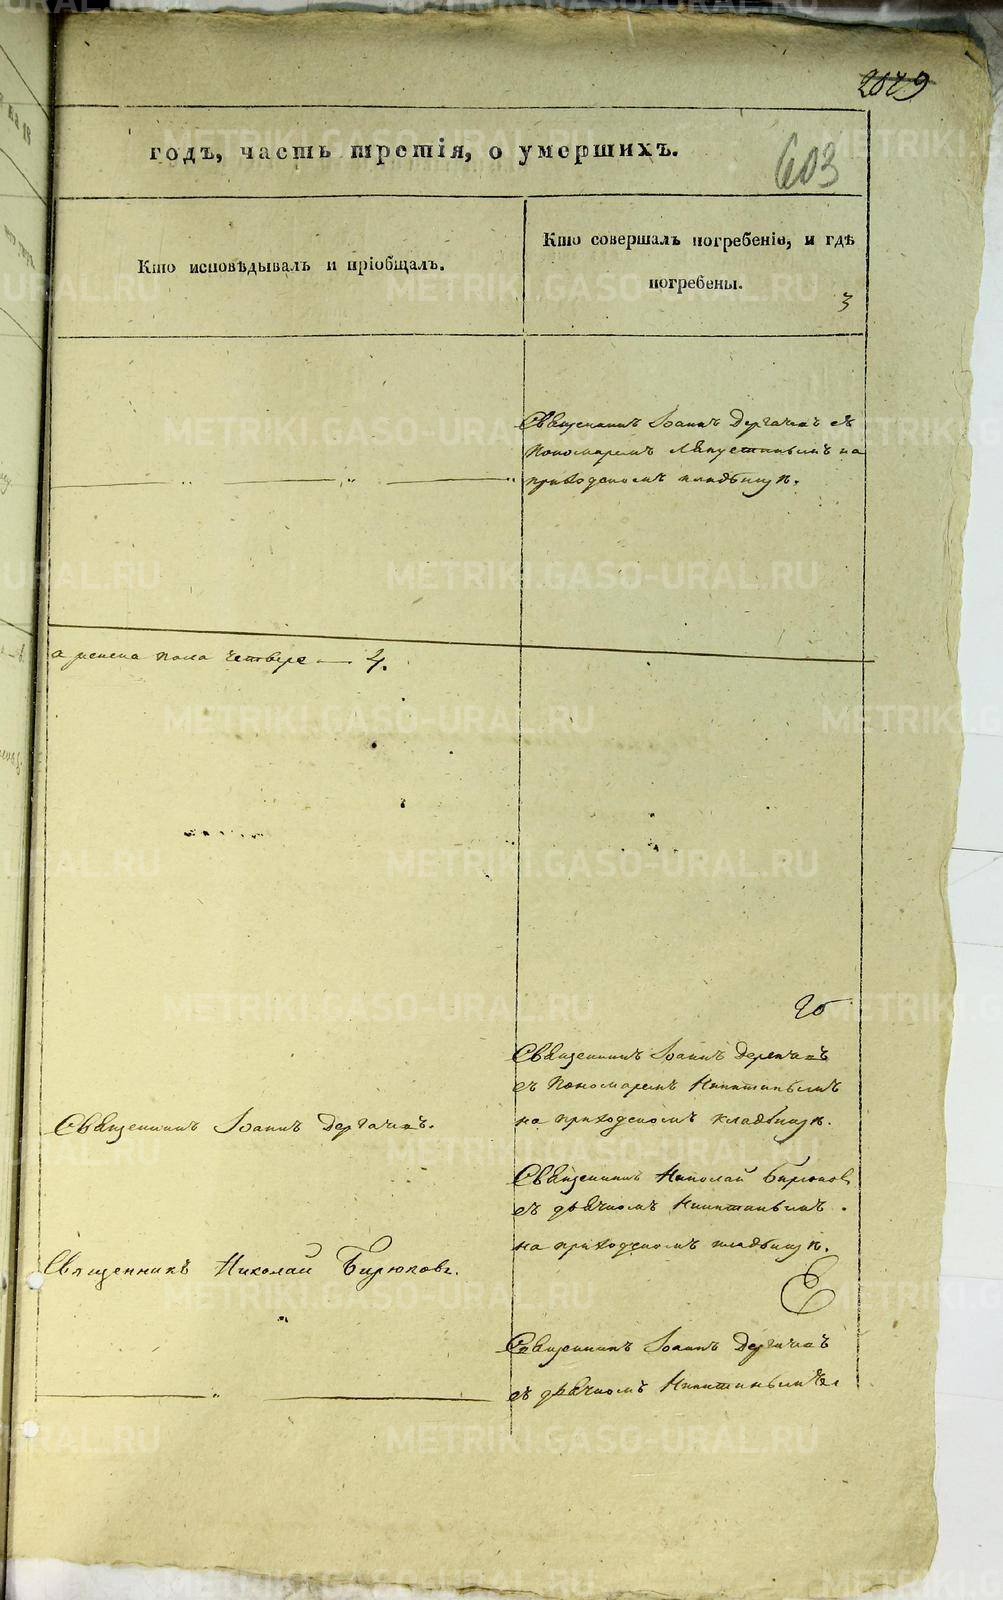 603
годъ, часть третія, о умершихъ.
Кто исповѣдывалъ и пріобщалъ.
Кто совершалъ погребеніе, и гдѣ
погребены.
3
Священникъ Іоаннъ Дергачевъ съ
Пономаремъ на
приходскомъ кладбищѣ.
а женска пола четверо — 4.
Священникъ Іоаннъ Дергачевъ
съ Пономаремъ Никитинымъ
на приходскомъ кладбищѣ.
Священникъ Іоаннъ Дергачевъ.
Священникъ Николай Бирюковъ
съ дьячкомъ Никитинымъ.
на приходскомъ кладбищѣ.
Священникъ Николай Бирюковъ.
Священникъ Іоаннъ Дергачевъ
съ дьячкомъ Никитинымъ
METRIKI.GASO-URAL.RU